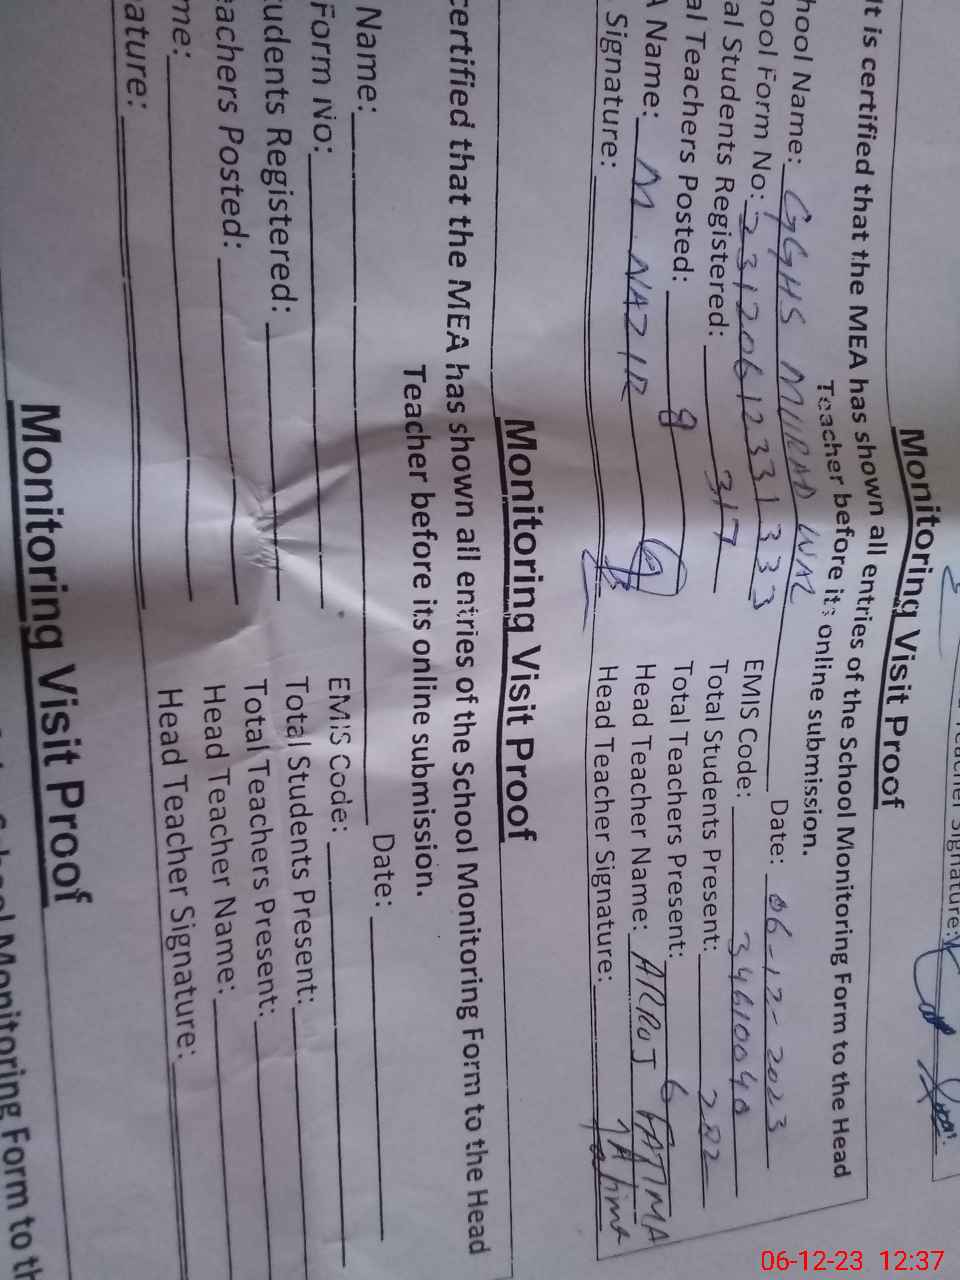 Teacher Signature:
Monitoring Visit Proof
It is certified that the MEA has shown all entries of the School Monitoring Form to the Head
Teacher before its online submission.
hool Name: GGHS MURAD WAL Date: 06-12-2023
hool Form No: 23120612331333 EMIS Code: 34610040
al Students Registered: 317 Total Students Present: 282
al Teachers Posted: 8 Total Teachers Present: 6
A Name: M. NAZIR Head Teacher Name: ARROJ FATIMA
Signature: Head Teacher Signature:
Monitoring Visit Proof
certified that the MEA has shown all entries of the School Monitoring Form to the Head
Teacher before its online submission.
Name: Date:
Form No: EMIS Code:
tudents Registered: Total Students Present:
eachers Posted: Total Teachers Present:
me: Head Teacher Name:
ature: Head Teacher Signature:
Monitoring Visit Proof
School Monitoring Form to th
06-12-23 12:37